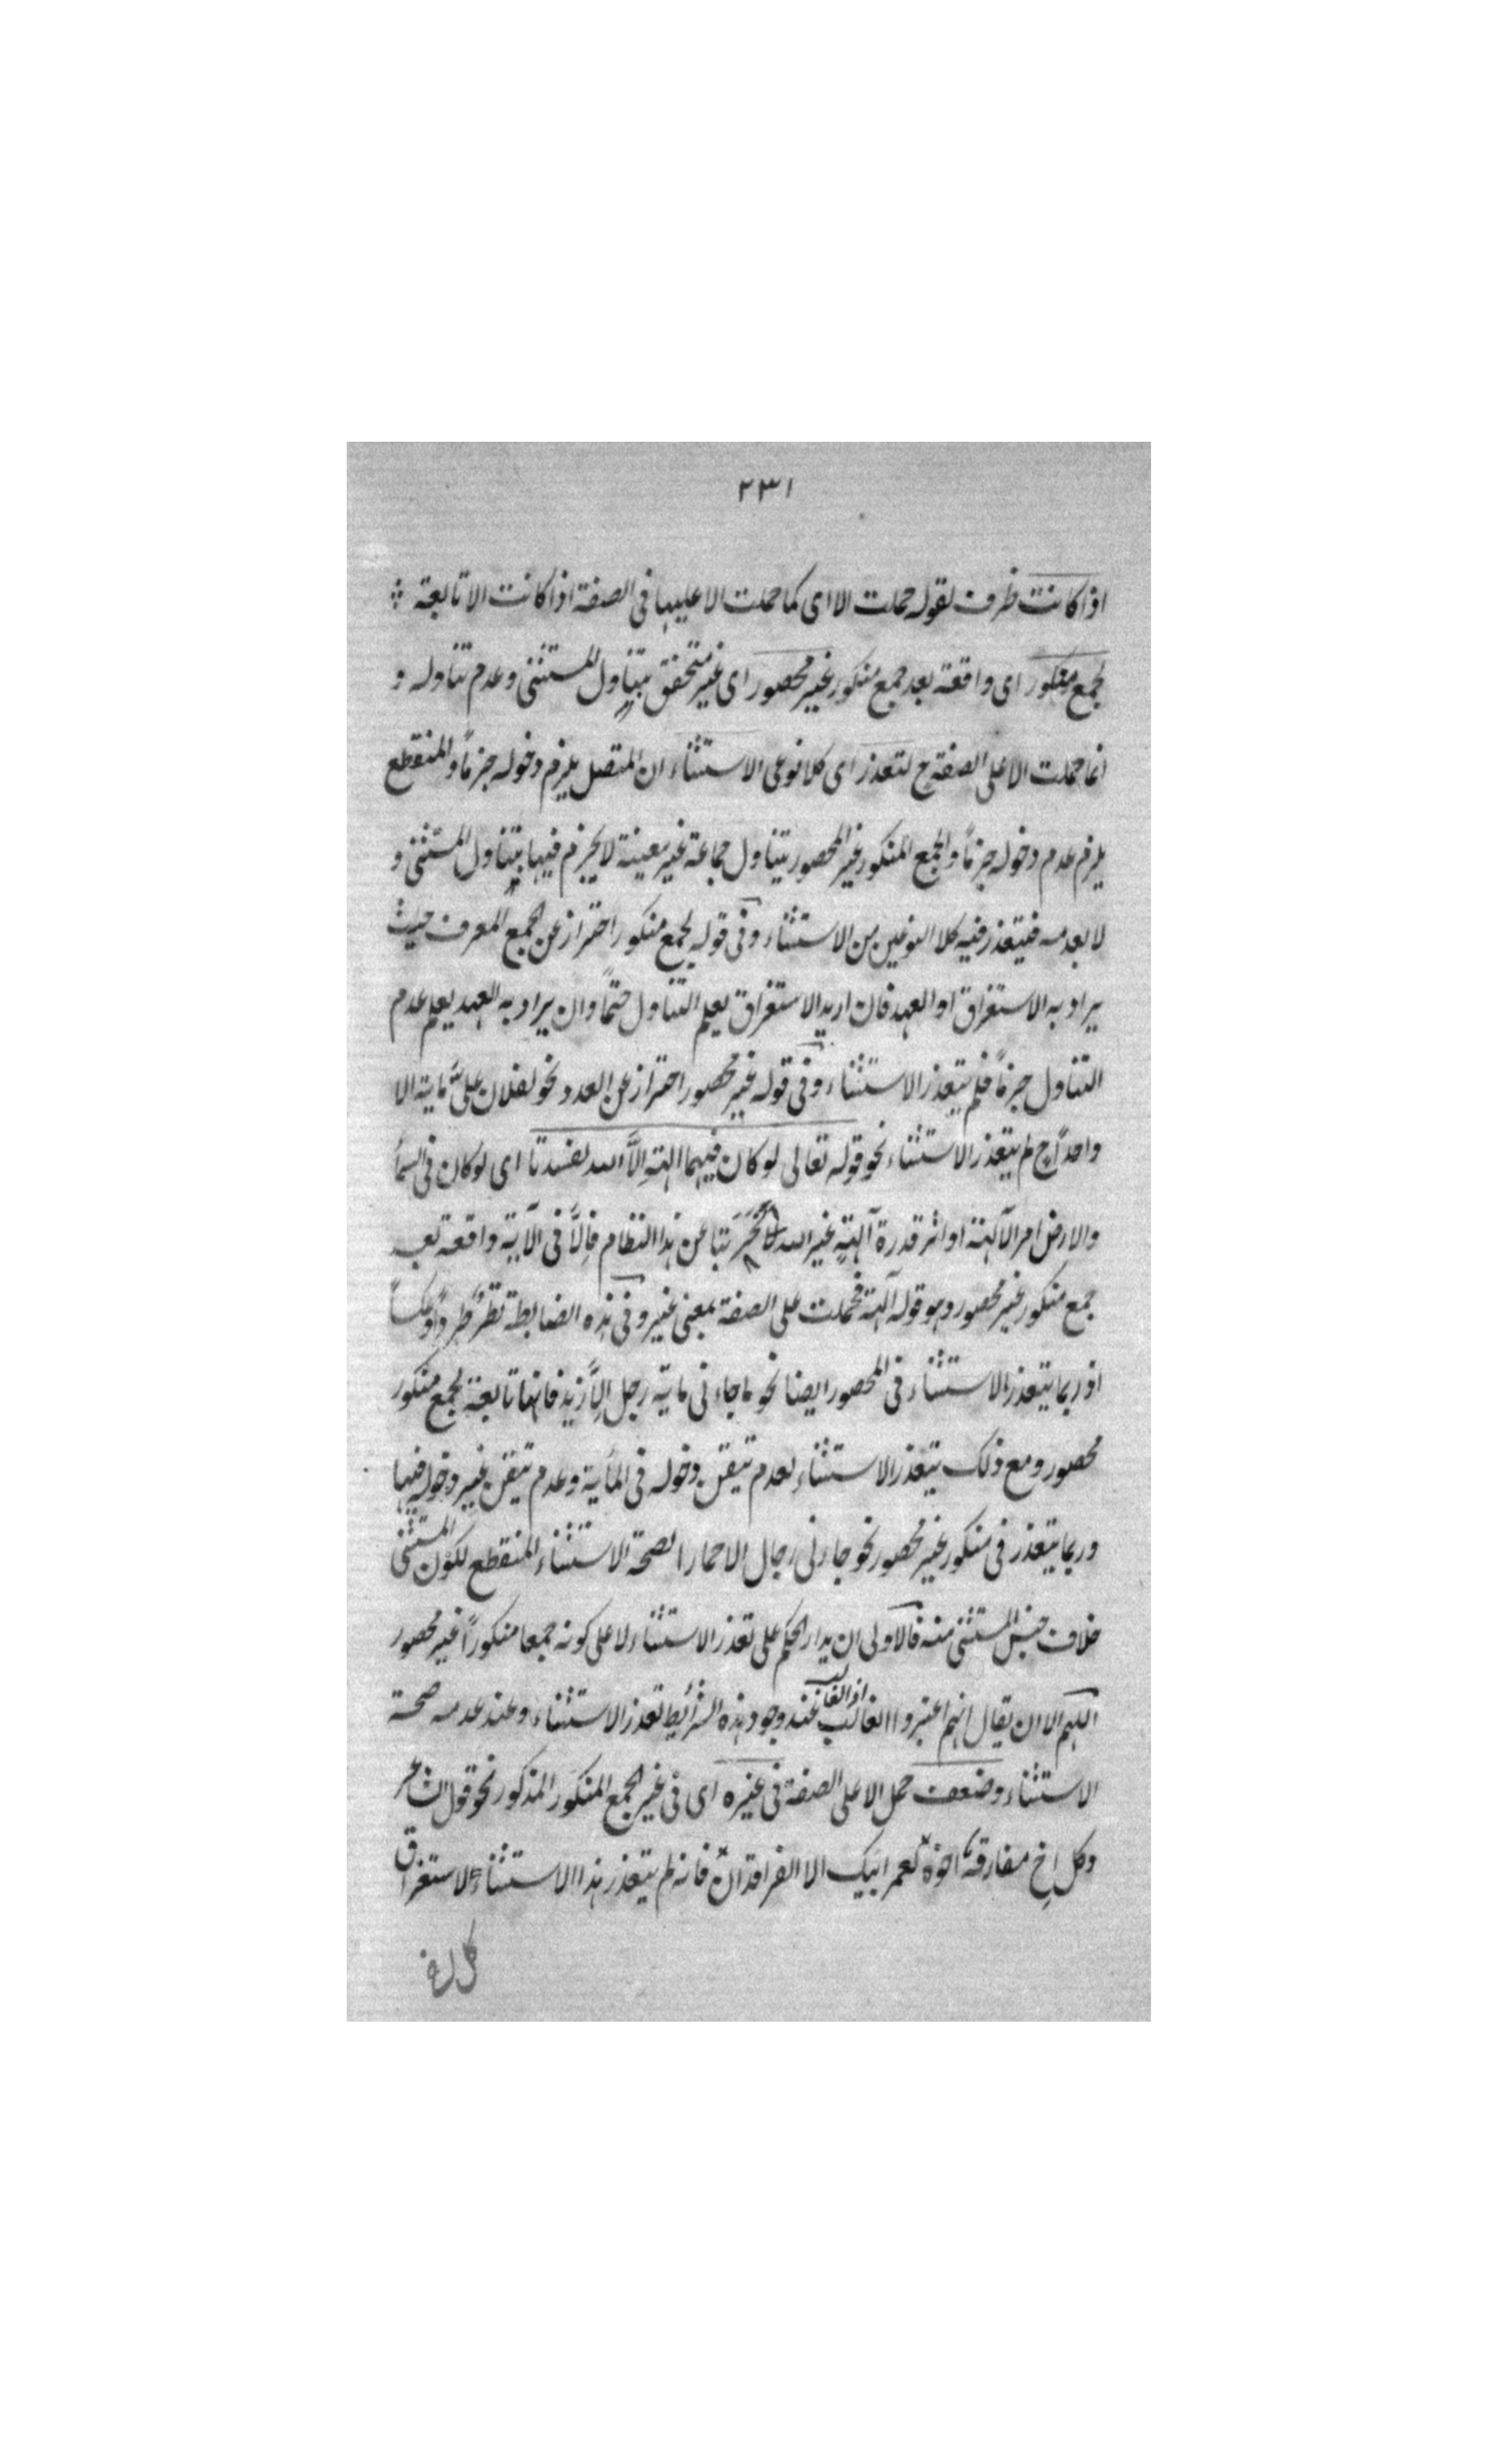 ٢٣١
اذا كانت ظرف لقوله حملت الا اى كما حملت الا عليها فى الصفة اذا كانت الا تابعة
لجمع منكور اى واقعة بعد جمع منكور غير محصور اى غير متحقق بتناول المستثنى وعدم تناوله و
انما حملت الا على الصفة ح لتعذر اى كلا نوعى الاستثناء ان المتصل يلزم دخوله جزماً والمنقطع
يلزم عدم دخوله جزماً والجمع المنكور غير المحصور يتناول جماعة غير معينة لا يجزم فيها بتناول المستثنى و
لا بعدمه فيتعذر فيه كلا النوعين من الاستثناء وفى قوله لجمع منكور احتراز عن الجمع المعرف حيث
يراد به الاستغراق او العهد فان اريد الاستغراق يعلم التناول حتماً وان يراد به العهد يعلم عدم
التناول جزماً فلم يتعذر الاستثناء وفى قوله غير محصور احتراز عن العدد نحو لفلان علىّ ماية الا
واحداً ح لم يتعذر الاستثناء نحو قوله تعالى لو كان فيهما الهة الاّ الله لفسدتا اى لو كان فى السماء
والارض امر الآلهة او اثر قدرة آلهةٍ غير الله عن هذا النظام فالاّ فى الآية واقعة بعد
جمع منكور غير محصور وهو قوله آلهة فحملت على الصفة بمعنى غير وفى هذه الضابطة نظرٌ طرداً وعكساً
اذ ربما يتعذر الاستثناء فى المحصور ايضا نحو ما جاءنى ماية رجل الاّ زيد فانها تابعة لجمع منكور
محصور ومع ذلك يتعذر الاستثناء لعدم تيقن دخوله فى الماية وعدم تيقن غير دخوله فيها
وربما يتعذر فى منكور غير محصور نحو جاءنى رجال الا حمارا لصحة الاستثناء المنقطع لكون المستثنى
خلاف جنس المستثنى منه فالاولى ان يدار الحكم على تعذر الاستثناء لا على كونه جمعا منكوراً غير محصور
اللهم الا ان يقال انهم اعتبروا الغالب اذ الغالب عند وجود هذه الشرائط تعذر الاستثناء وعند عدمه صحة
الاستثناء وضعف حمل الا على الصفة فى غيره اى فى غير الجمع المنكور المذكور نحو قول الشاعر
وكل اخ مفارقه اخوه لعمر ابيك الا الفرقدان فانه لم يتعذر هذا الاستثناء لاستغراق
كل اخ